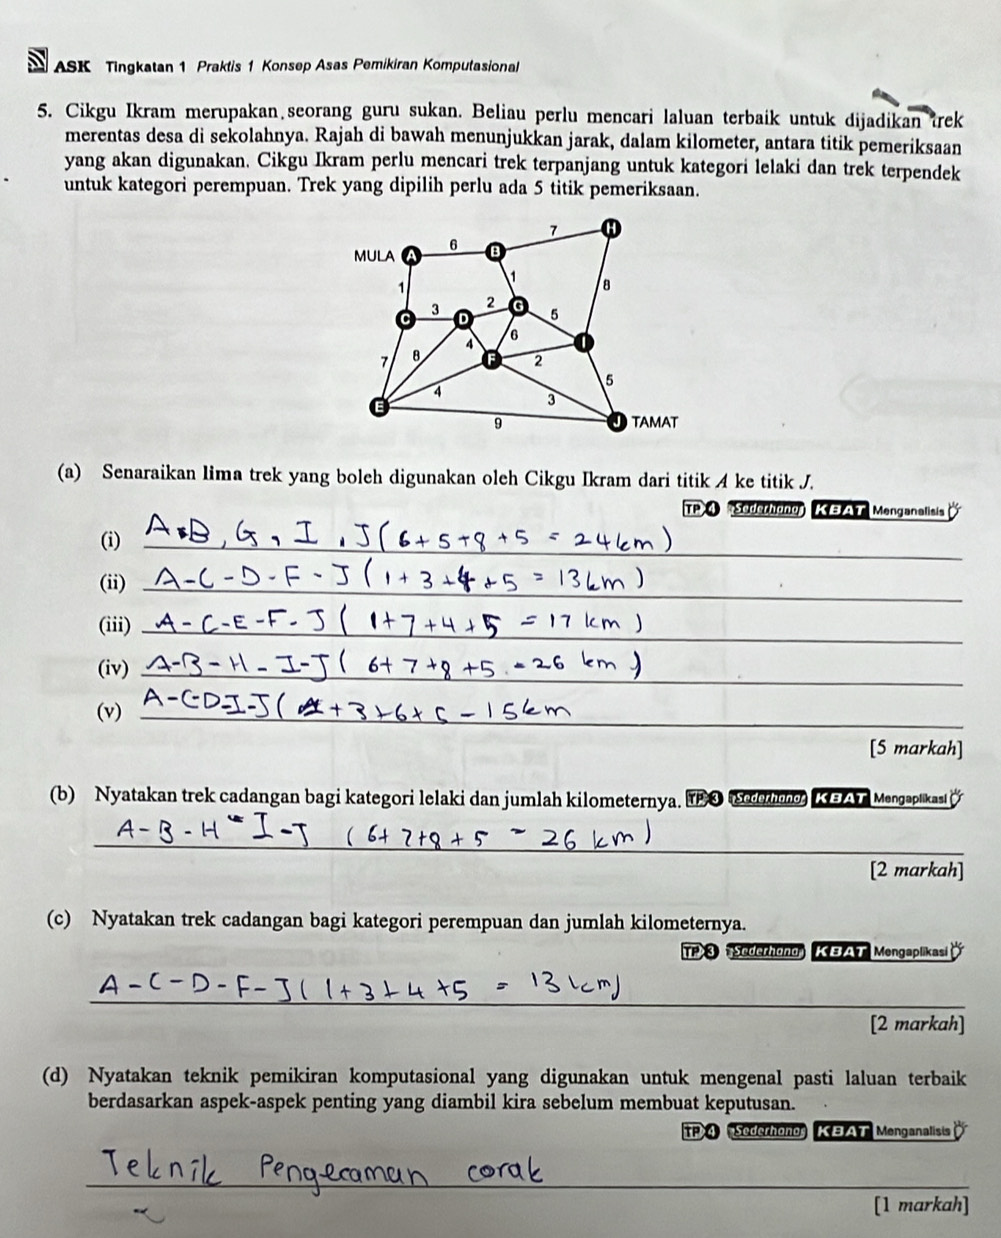 ASK Tingkatan 1 Praktis 1 Konsep Asas Pemikiran Komputasional
5. Cikgu Ikram merupakan seorang guru sukan. Beliau perlu mencari laluan terbaik untuk dijadikan trek
merentas desa di sekolahnya. Rajah di bawah menunjukkan jarak, dalam kilometer, antara titik pemeriksaan
yang akan digunakan. Cikgu Ikram perlu mencari trek terpanjang untuk kategori lelaki dan trek terpendek
untuk kategori perempuan. Trek yang dipilih perlu ada 5 titik pemeriksaan.
7 H
MULA A 6 B
1 1 8
C 3 D 2 G 5
7 8 4 6 F 2 I
4 3 5
E 9 J TAMAT
(a) Senaraikan lima trek yang boleh digunakan oleh Cikgu Ikram dari titik A ke titik J.
TP 4 Sederhana KBAT Menganalisis
(i) A-B, G, I, J (6+5+8+5 = 24km)
(ii) A-C-D-F-J (1+3+4+5 = 13km)
(iii) A-C-E-F-J (1+7+4+5 = 17 km)
(iv) A-B-H-I-J (6+7+8+5 = 26 km)
(v) A-C-D-I-J (1+3+6+5 - 15km
[5 markah]
(b) Nyatakan trek cadangan bagi kategori lelaki dan jumlah kilometernya. TP 3 Sederhana KBAT Mengaplikasi
A-B-H-I-J (6+7+8+5 = 26 km)
[2 markah]
(c) Nyatakan trek cadangan bagi kategori perempuan dan jumlah kilometernya.
TP 3 Sederhana KBAT Mengaplikasi
A-C-D-F-J (1+3+4+5 = 13km)
[2 markah]
(d) Nyatakan teknik pemikiran komputasional yang digunakan untuk mengenal pasti laluan terbaik
berdasarkan aspek-aspek penting yang diambil kira sebelum membuat keputusan.
TP 4 Sederhana KBAT Menganalisis
Teknik Pengecaman corak
[1 markah]